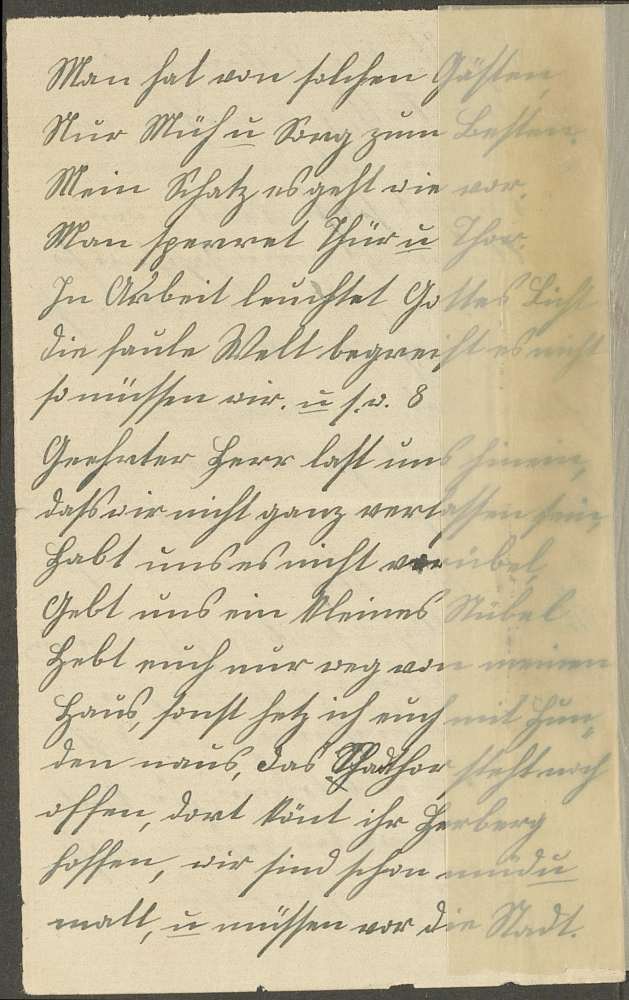 Man hat von solchen Gästen,
Nur Müh u Sorg zum Besten.
Mein Schatz es geht wie vor.
Man sperret Thür u Thor.
In Arbeit leuchtet Gottes Licht
die faule Welt begreift es nicht
so müssen wir. u s. w. 8
Geehrter Herr laßt uns hinein,
daß wir nicht ganz verlassen sein,
Habt uns es nicht vorübel,
Gebt uns ein kleines Stübel
Hebt euch nur weg von meinen
Haus, sonst hetz ich euch mit Hun-
den naus, das Stadthor steht noch
offen, dort könt ihr Herberg
hoffen, wir sind schon müd u
matt, u müssen vor die Stadt.